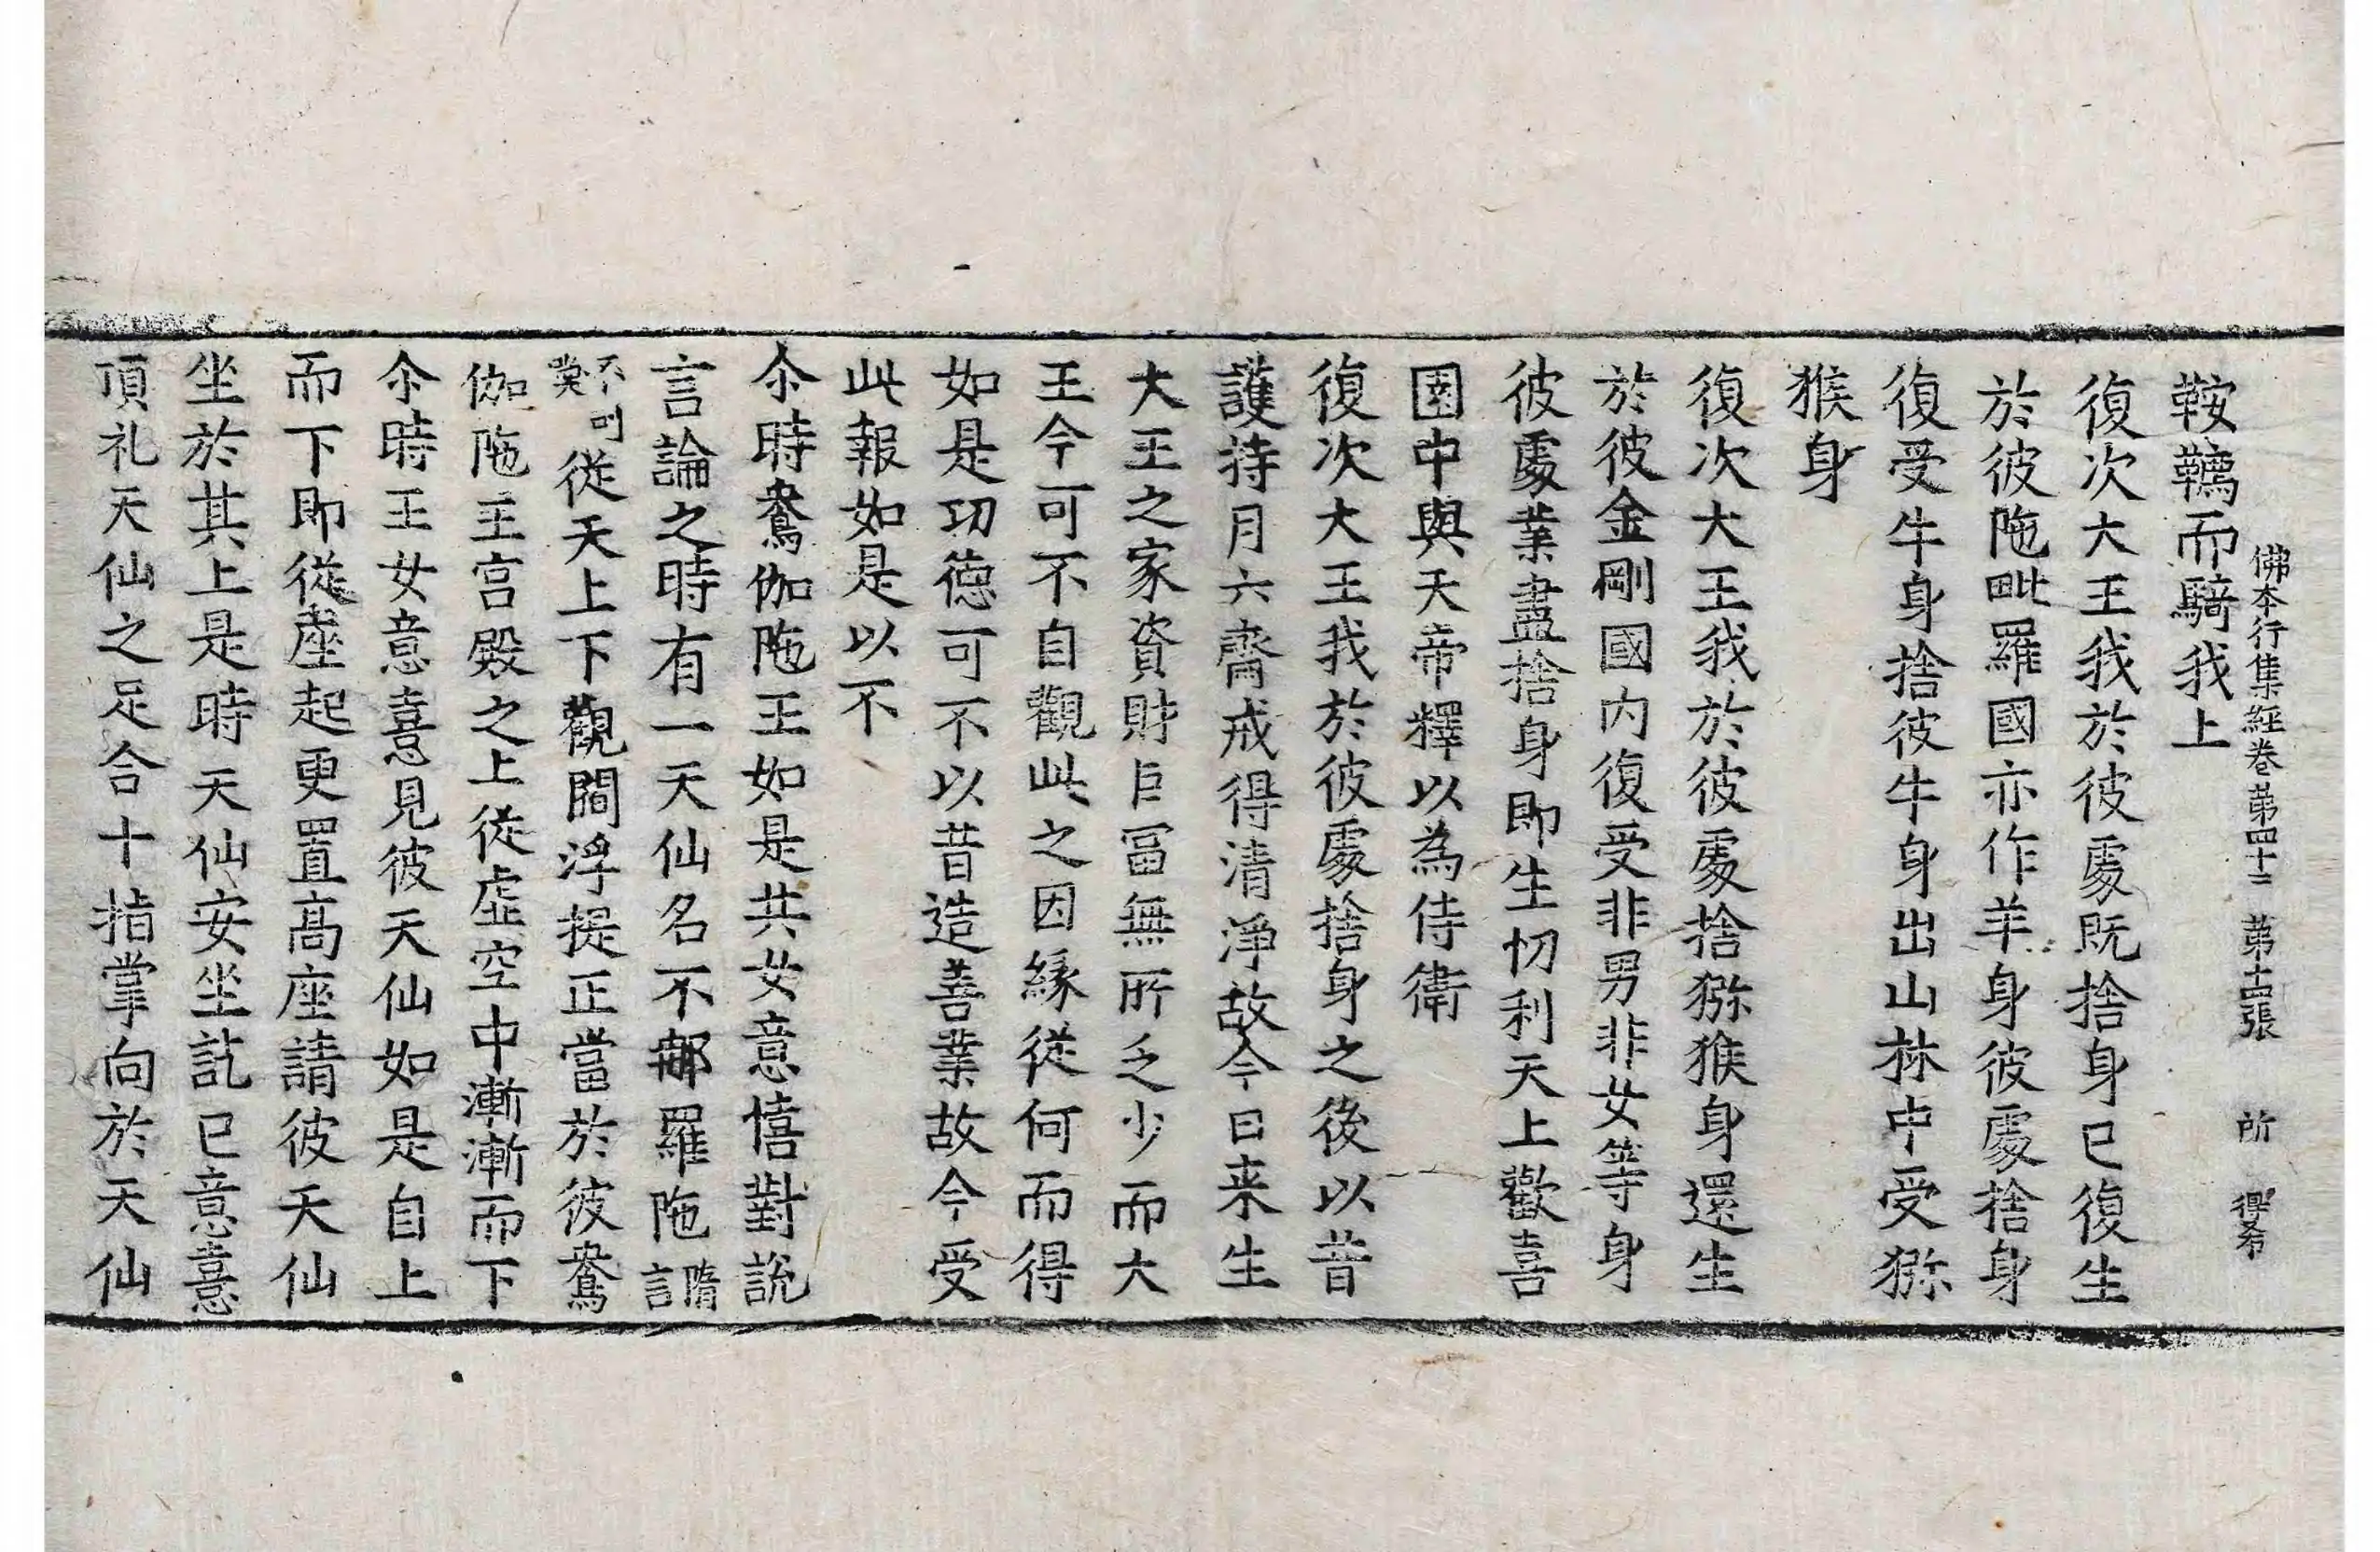 佛本行集經卷第四十二 第十四張 所 得希
鞍韉而騎我上
復次大王我於彼處既捨身已復生
於彼陁毗羅國亦作羊身彼處捨身
復受牛身捨彼牛身出山林中受獼
猴身
復次大王我於彼處捨獼猴身還生
於彼金剛國内復受非男非女等身
彼處業盡捨身即生忉利天上歡喜
園中與天帝釋以為侍衛
復次大王我於彼處捨身之後以昔
護持月六齋戒得清淨故今日来生
大王之家資財巨冨無所乏少而大
王今可不自觀此之因緣從何而得
如是功德可不以昔造善業故今受
此報如是以不
尒時鴦伽陁王如是共女意憘對説
言論之時有一天仙名不那羅陁隋言
不叫從天上下觀閻浮提正當於彼鴦
伽陁主宫殿之上從虛空中漸漸而下
尒時王女意憙見彼天仙如是自上
而下即從座起更置髙座請彼天仙
坐於其上是時天仙安坐訖已意憙
頂礼天仙之足合十指掌向於天仙